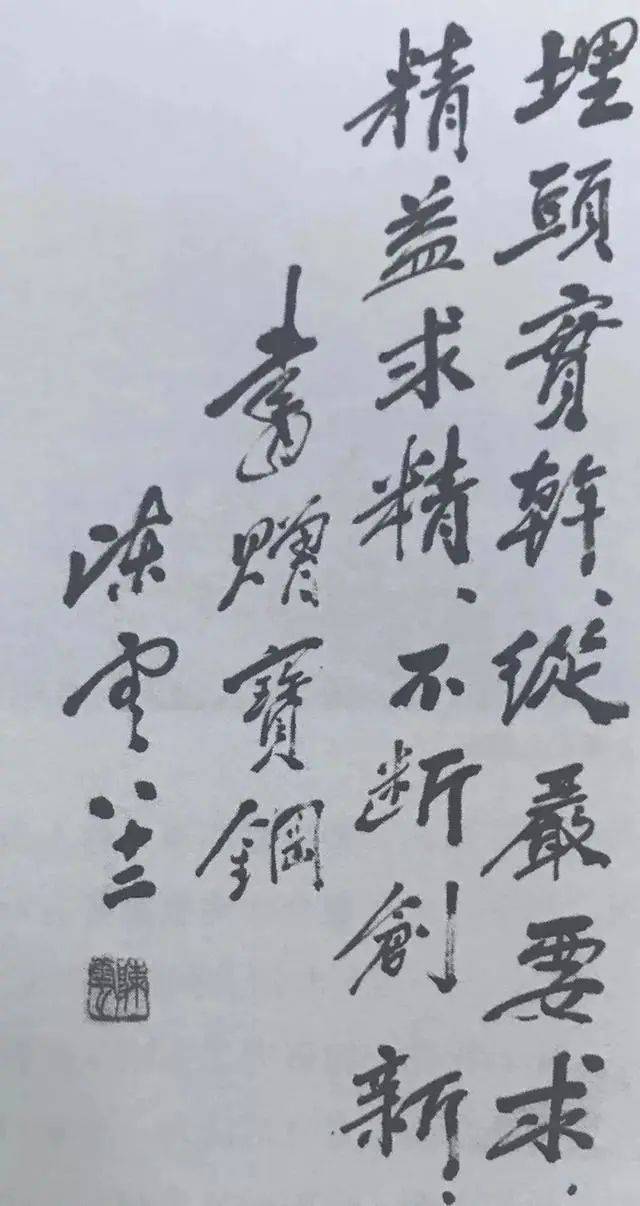 埋頭實幹、從嚴要求、
精益求精、不断創新、
書贈寶鋼
陈雲八十二
陳雲